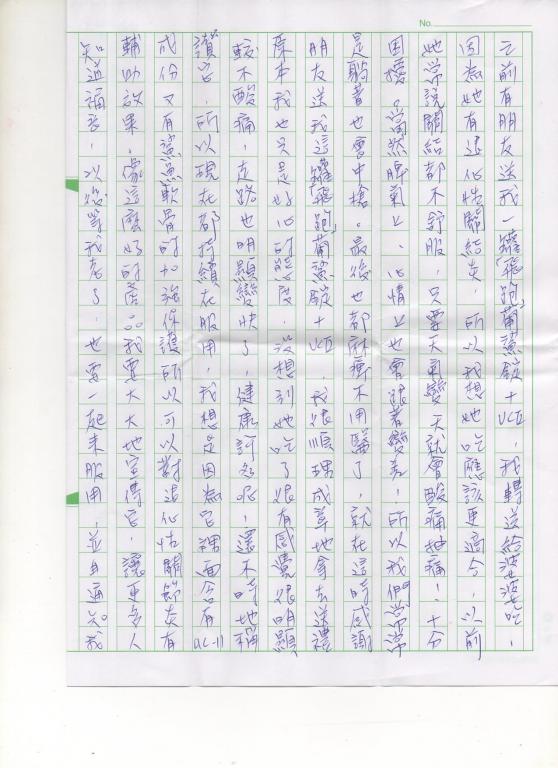 No.
之前有朋友送我一罐「飛跑」葡萄鯊錠+UCII,我轉送給婆婆吃,
因為她有退化性關結炎,所以我想她吃應該更適合,以前
她常說關結都不舒服,只要天氣變天就會酸痛抽痛!十分
困擾。當然脾氣上、心情上也會跟著變差!所以我們常常
是躺著也會中槍。最後也都麻痺不用醫了,就在這時感謝
朋友送我這罐「飛跑」葡萄鯊錠+UCII,我很順理成章地拿去送禮
原本我也只是好心的態度,沒想到她吃了很有感覺很明顯
較不酸痛,走路也明顯變快了,健康許多呢,還不時地稱
讚它,所以現在都持續在服用,我想是因為它裡面含有UC-II
成份又有鯊魚軟骨的加強保護所以可以對退化性關節炎有
輔助效果,像這麼好的產品我要大大地宣傳它,讓更多人
知道福音,以後等我老了,也要一起來服用,並且通知我